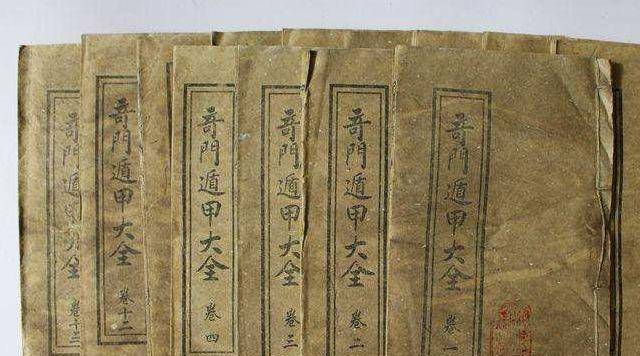 奇門遁甲大全 卷一
奇門遁甲大全 卷二
奇門遁甲大全 卷三
奇門遁甲大全 卷四
奇門遁甲大全 卷十二
奇門遁甲大全 卷十三